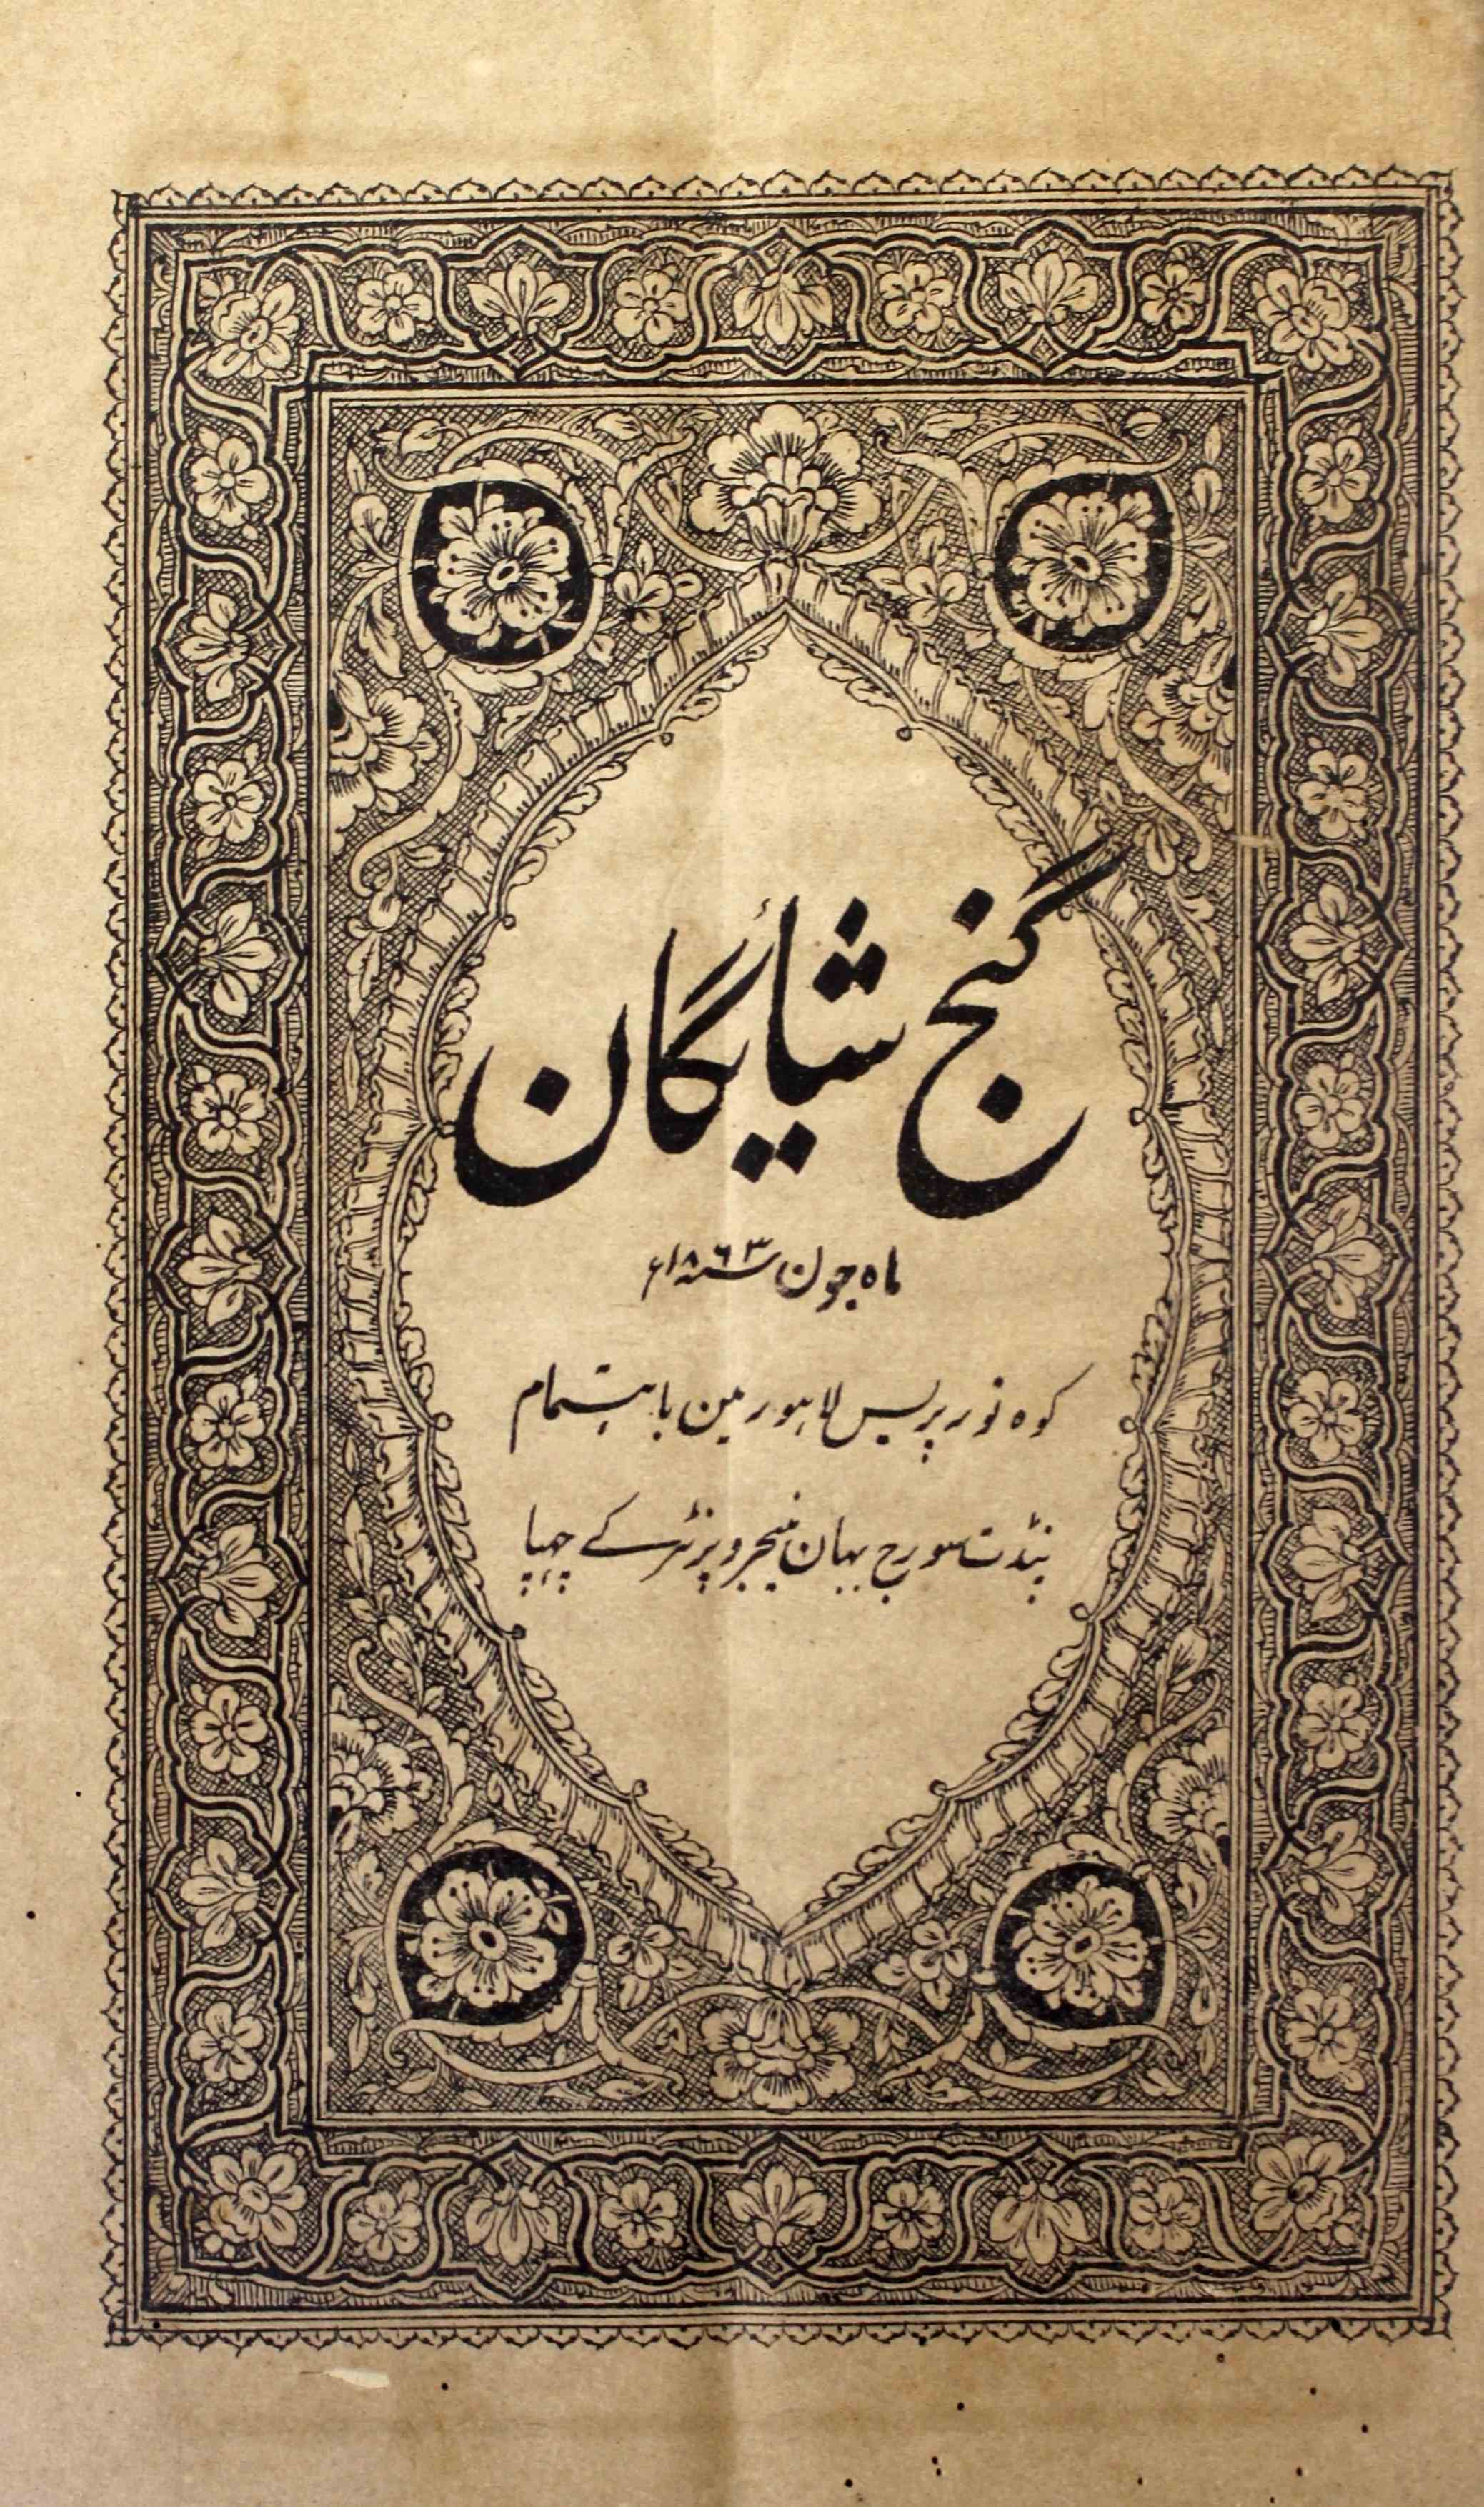 گنج شائیگان
ماہ جون سنہ ۱۸۶۳ء
کوہ نور پریس لاہور مین باہتمام
پنڈت سورج بہان منیجر و پرنٹر کے چھپا